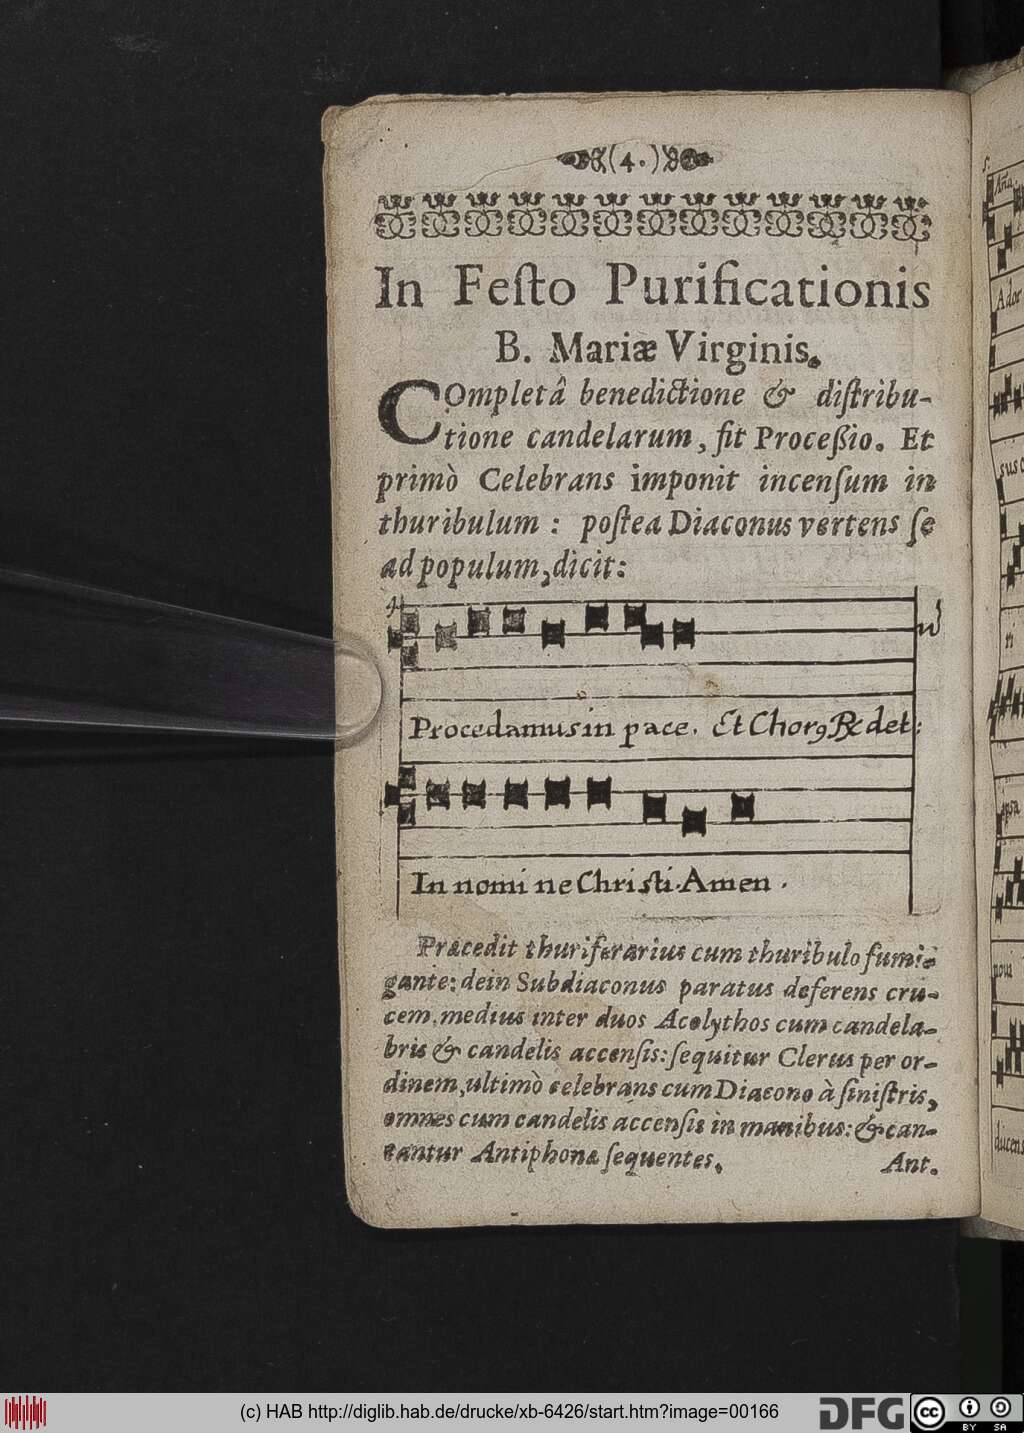 (4.)
In Feſto Purificationis
B. Mariæ Virginis.
COmpletâ benedictione & diſtribu-
tione candelarum, fit Proceßio. Et
primò Celebrans imponit incenſum in
thuribulum : poſtea Diaconus vertens ſe
ad populum, dicit:
Procedamus in pace. Et Chorꝰ ℞ det:
In nomi ne Chriſti. Amen.
Præcedit thuriferarius cum thuribulo fumi-
gante: dein Subdiaconus paratus deferens cru-
cem, medius inter duos Acolythos cum candela-
bris & candelis accenſis: ſequitur Clerus per or-
dinem, ultimò celebrans cum Diacono à ſiniſtris,
omnes cum candelis accenſis in manibus: & can-
tantur Antiphonæ ſequentes.
Ant.
Aña
Ador
ri
ipsa
ducens
(c) HAB http://diglib.hab.de/drucke/xb-6426/start.htm?image=00166
DFG
cc BY SA